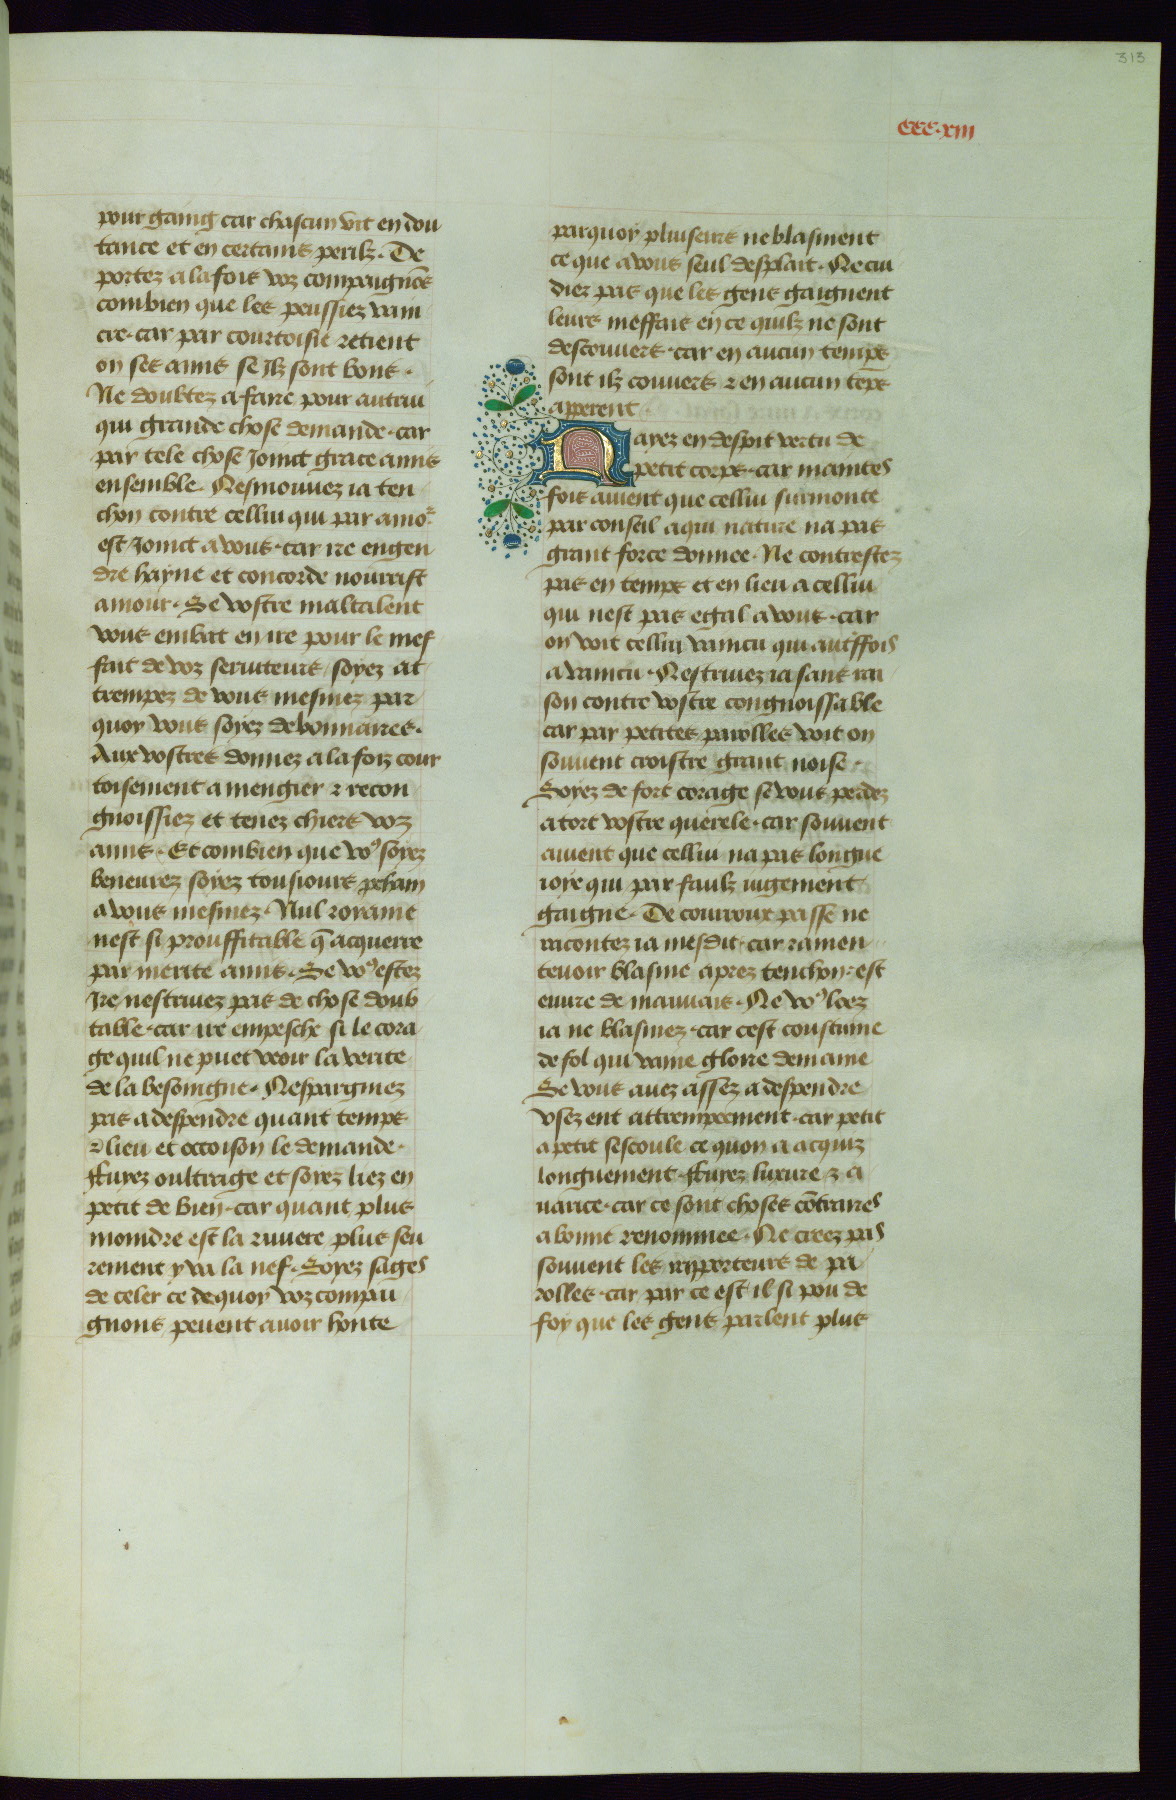 313
CCC.xiii
pour gaing car chascun vit en dou
tance et en certains perilz. De
portez a la fois voz compaignõs
combien que les peussiez vain
cre. car par courtoisie retient
on ses amis se Ilz sont bons.
Ne doubtez a faire pour autrui
qui grande chose demande. car
par tele chose Joinct grace amis
ensemble. Nesmouvez ia ten
chon contre cellui qui par amor
est Joinct a vous. car ire engen
dre hayne et concorde nourrist
amour. Se vostre maltalent
vous embat en ire pour le mef
fait de voz seruiteurs / soyez at
trempez de vous mesmez par
quoy vous soyez debonnaires.
Aux vostres donnez a la foiz cour
toisement a mengier ⁊ recon
gnoissiez et tenez chiers voz
amis. Et combien que voꝰ soyez
beneurez soyez tousiours prchain
a vous mesmez. Nul royame
nest si prouffitable q̃ acquerre
par merite amis. Se voꝰ estez
Ire nestriuez pas de chose doub
table. car ire empesche si le cora
ge quil ne puet veoir la verite
de la besoingne. Nespargniez
pas a despendre quant temps
⁊ lieu et occoison le demande.
ffuyez oultrage et soyez liez en
petit de bien. car quant plus
moindre est la riuiere plus seu
rement y va la nef. Soyez sages
de celer ce dequoy voz compai
gnons peuent auoir honte
parquoy pluiseurs ne blasment
ce que a vous seul desplait. Ne cui
diez pas que les gens gaignent
leurs meffais en ce quilz ne sont
descouuers. car en aucun temps
sont ilz couuers ⁊ en aucun tẽps
apperent.
Nayez en despit vertu de
petit corps. car maintes
fois auient que cellui surmonte
par conseil a qui nature na pas
grant force donnee. Ne contrestez
pas en temps et en lieu a cellui
qui nest pas egal a vous. car
on voit cellui vaincu qui autffois
a vaincu. Nestriuez ia sans rai
son contre vostre congnoissable
car par petites parolles voit on
souuent croistre grant noise.
Soyez de fort corage se vous perdez
a tort vostre querele. car souuent
auient que cellui na pas longue
ioye qui par faulz iugement
gaigne. De courroux passe ne
racontez ia mesdit. car ramen
teuoir blasme aprez tenchon est
euure de mauuais. Ne voꝰ loez
ia ne blasmez. car cest coustume
de fol qui vaine gloire demaine
Se vous auez assez a despendre
vsez ent attrempeement. car petit
a petit sescoule ce quon a acquiz
longuement. ffuyez luxure ⁊ a
uarice. car ce sont choses cõtraires
a bonne renommee. Ne creez pas
souuent les rapporteurs de pa
rolles. car par ce est il si pou de
foy que les gens parlent plus